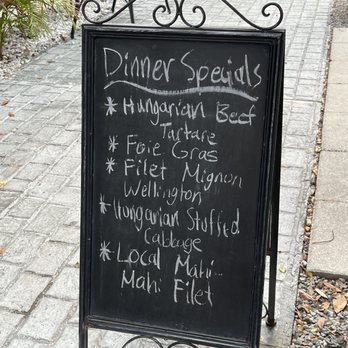 Dinner Specials
* Hungarian Beef
Tartare
* Foie Gras
* Filet Mignon
Wellington
* Hungarian Stuffed
Cabbage
* Local Mahi...
Mahi Filet